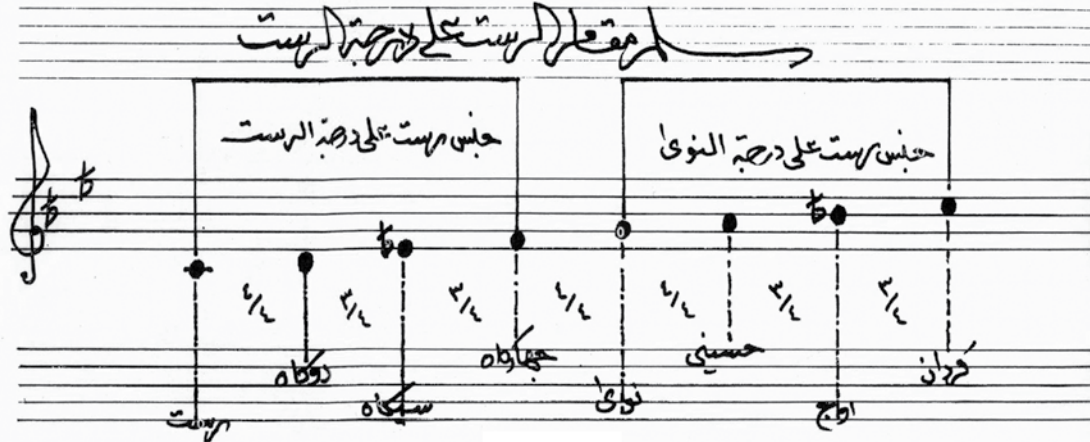 سلم مقام الرست على درجة الرست
جنس رست على درجة النوى
جنس رست على درجة الرست
٤/٤ ٣/٤ ٣/٤ ٤/٤ ٤/٤ ٣/٤ ٣/٤
رست
دوكاه
سيكاه
جهاركاه
نوى
حسيني
اوج
كردان